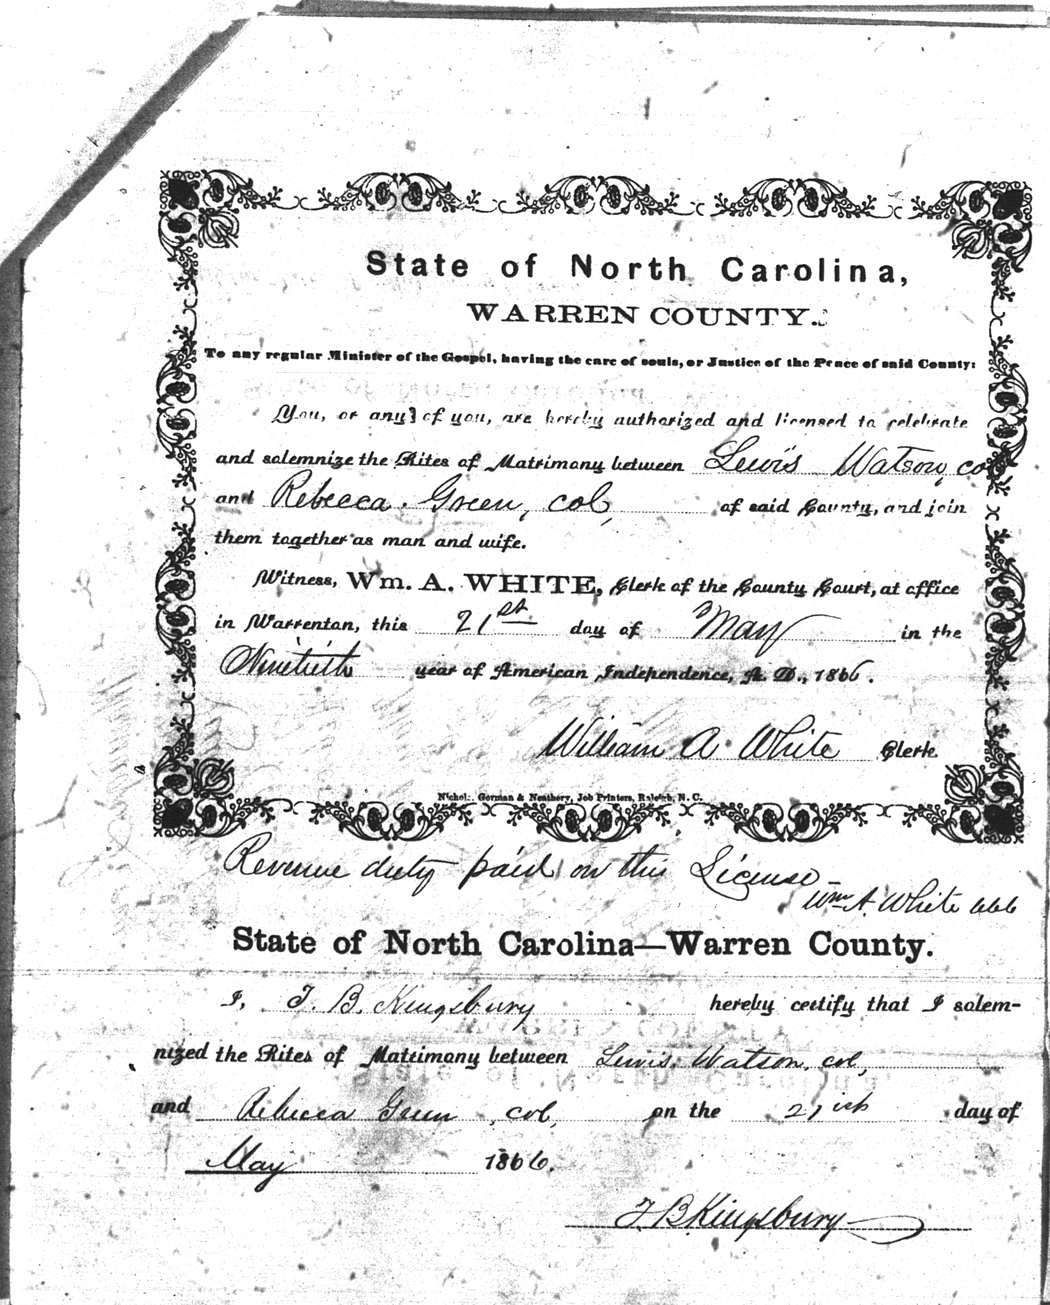 State of North Carolina,
WARREN COUNTY.
To any regular Minister of the Gospel, having the care of souls, or Justice of the Peace of said County:
You, or any of you, are hereby authorized and licensed to celebrate
and solemnize the Rites of Matrimony between Lewis Watson, co
and Rebecca Green, col, of said County, and join
them together as man and wife.
Witness, Wm. A. WHITE, Clerk of the County Court, at office
in Warrenton, this 21st day of May in the
Ninetieth year of American Independence, A. D., 1866.
William A White Clerk.
Nichols, Gorman & Neathery, Job Printers, Raleigh, N. C.
Revenue duty paid on this License
Wm A. White
State of North Carolina—Warren County.
I, T. B. Kingsbury hereby certify that I solem-
nized the Rites of Matrimony between Lewis Watson, col,
and Rebecca Green, col, on the day of
May 1866.
T B Kingsbury